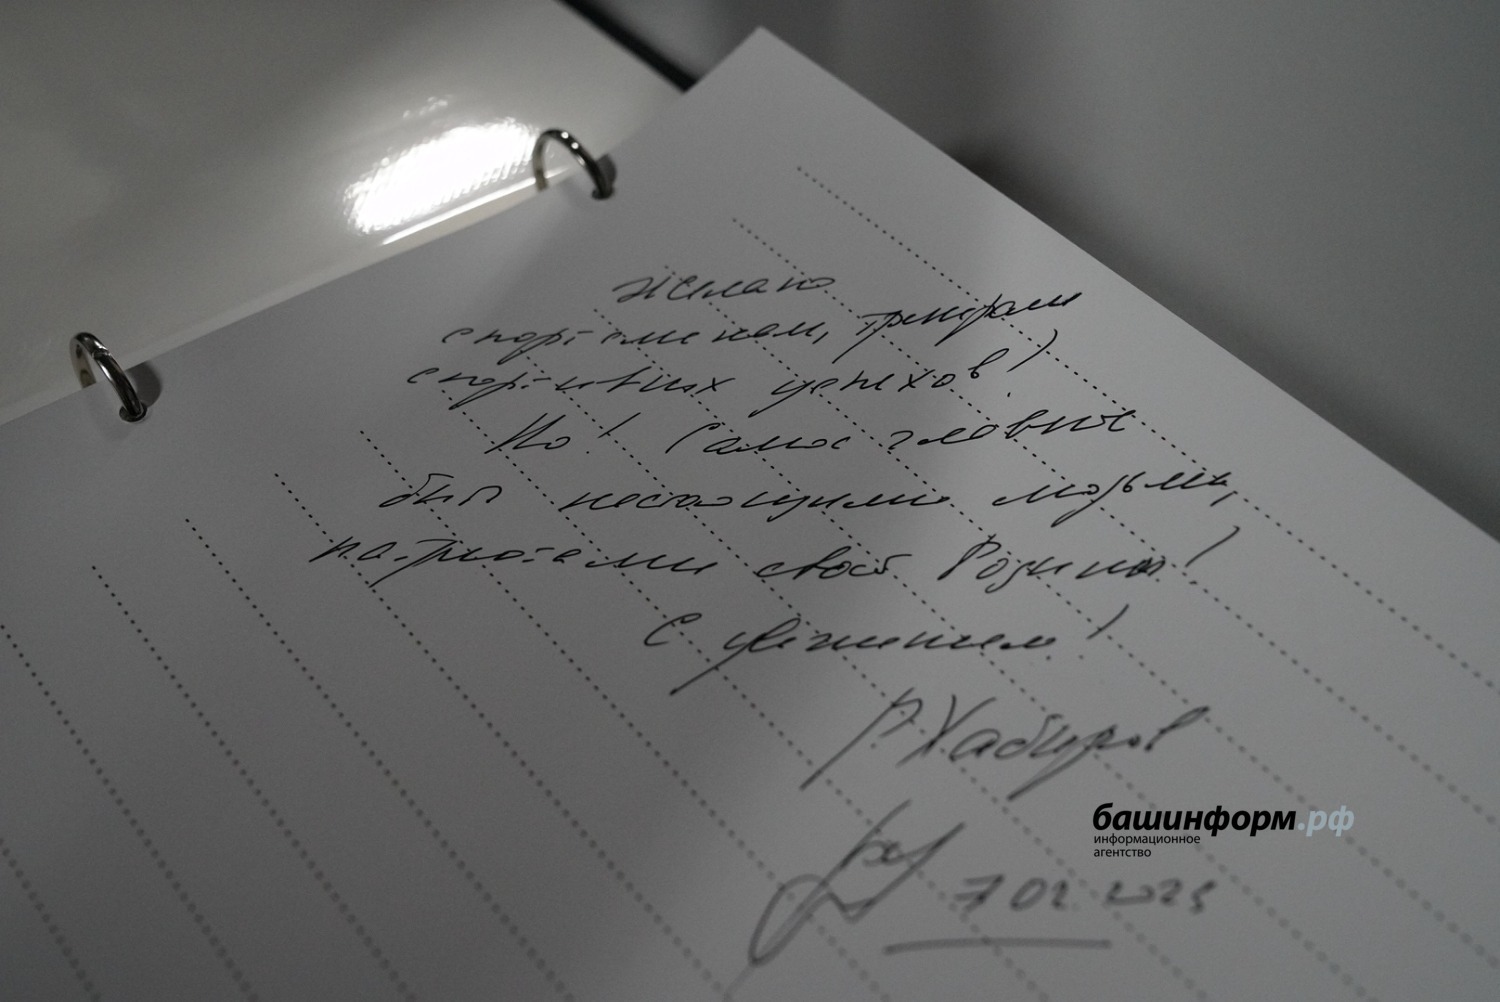 Желаю
спортсменам, тренерам
спортивных успехов!
Но! Самое главное
быть настоящими людьми,
патриотами своей Родины!
С уважением!
Р. Хабиров
7.02.2023
башинформ.рф
информационное
агентство